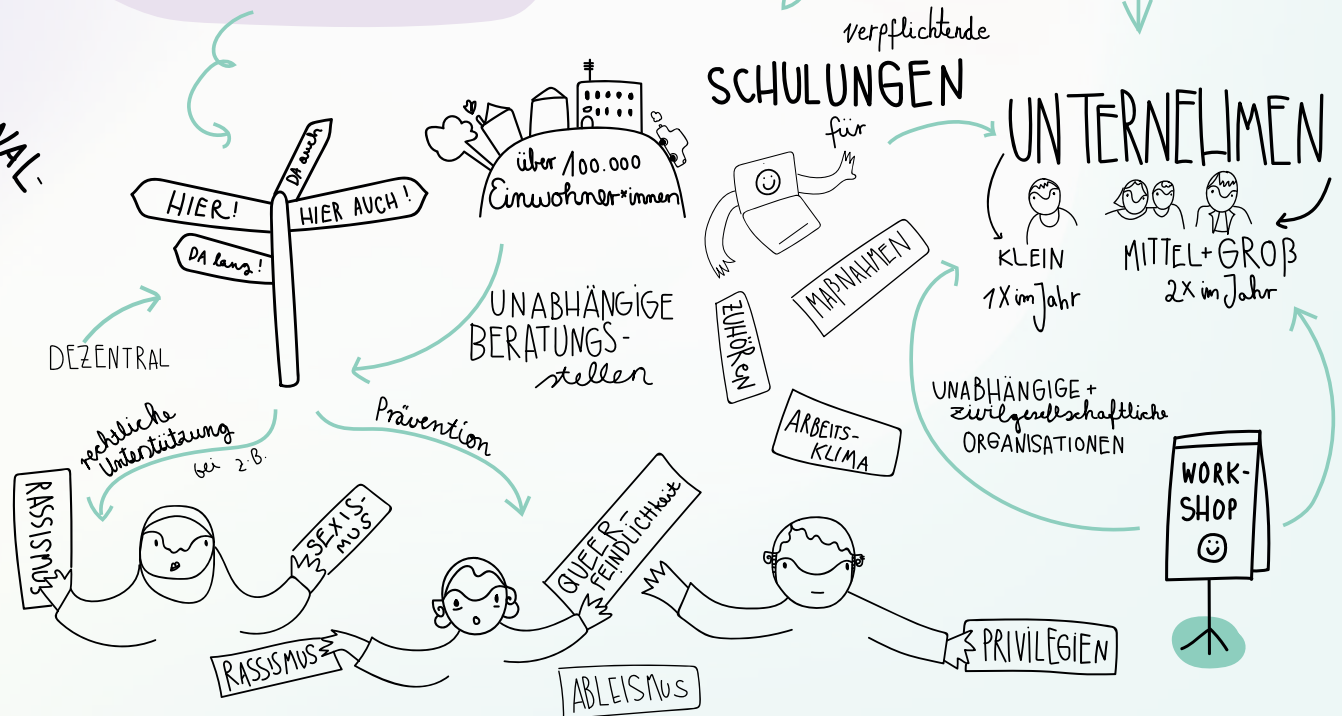 NAL-
DA auch
HIER!
HIER AUCH!
DA lang!
DEZENTRAL
über 100.000
Einwohner*innen
UNABHÄNGIGE
BERATUNGS-
stellen
rechtliche
Unterstützung
bei z.B.
Prävention
RASSISMUS
SEXIS-
MUS
RASSISMUS
QUEER-
FEINDLICHKEIT
ABLEISMUS
PRIVILEGIEN
verpflichtende
SCHULUNGEN
für
MAßNAHMEN
ZUHÖREN
ARBEITS-
KLIMA
UNTERNEHMEN
KLEIN
1X im Jahr
MITTEL+GROß
2X im Jahr
UNABHÄNGIGE +
zivilgesellschaftliche
ORGANISATIONEN
WORK-
SHOP